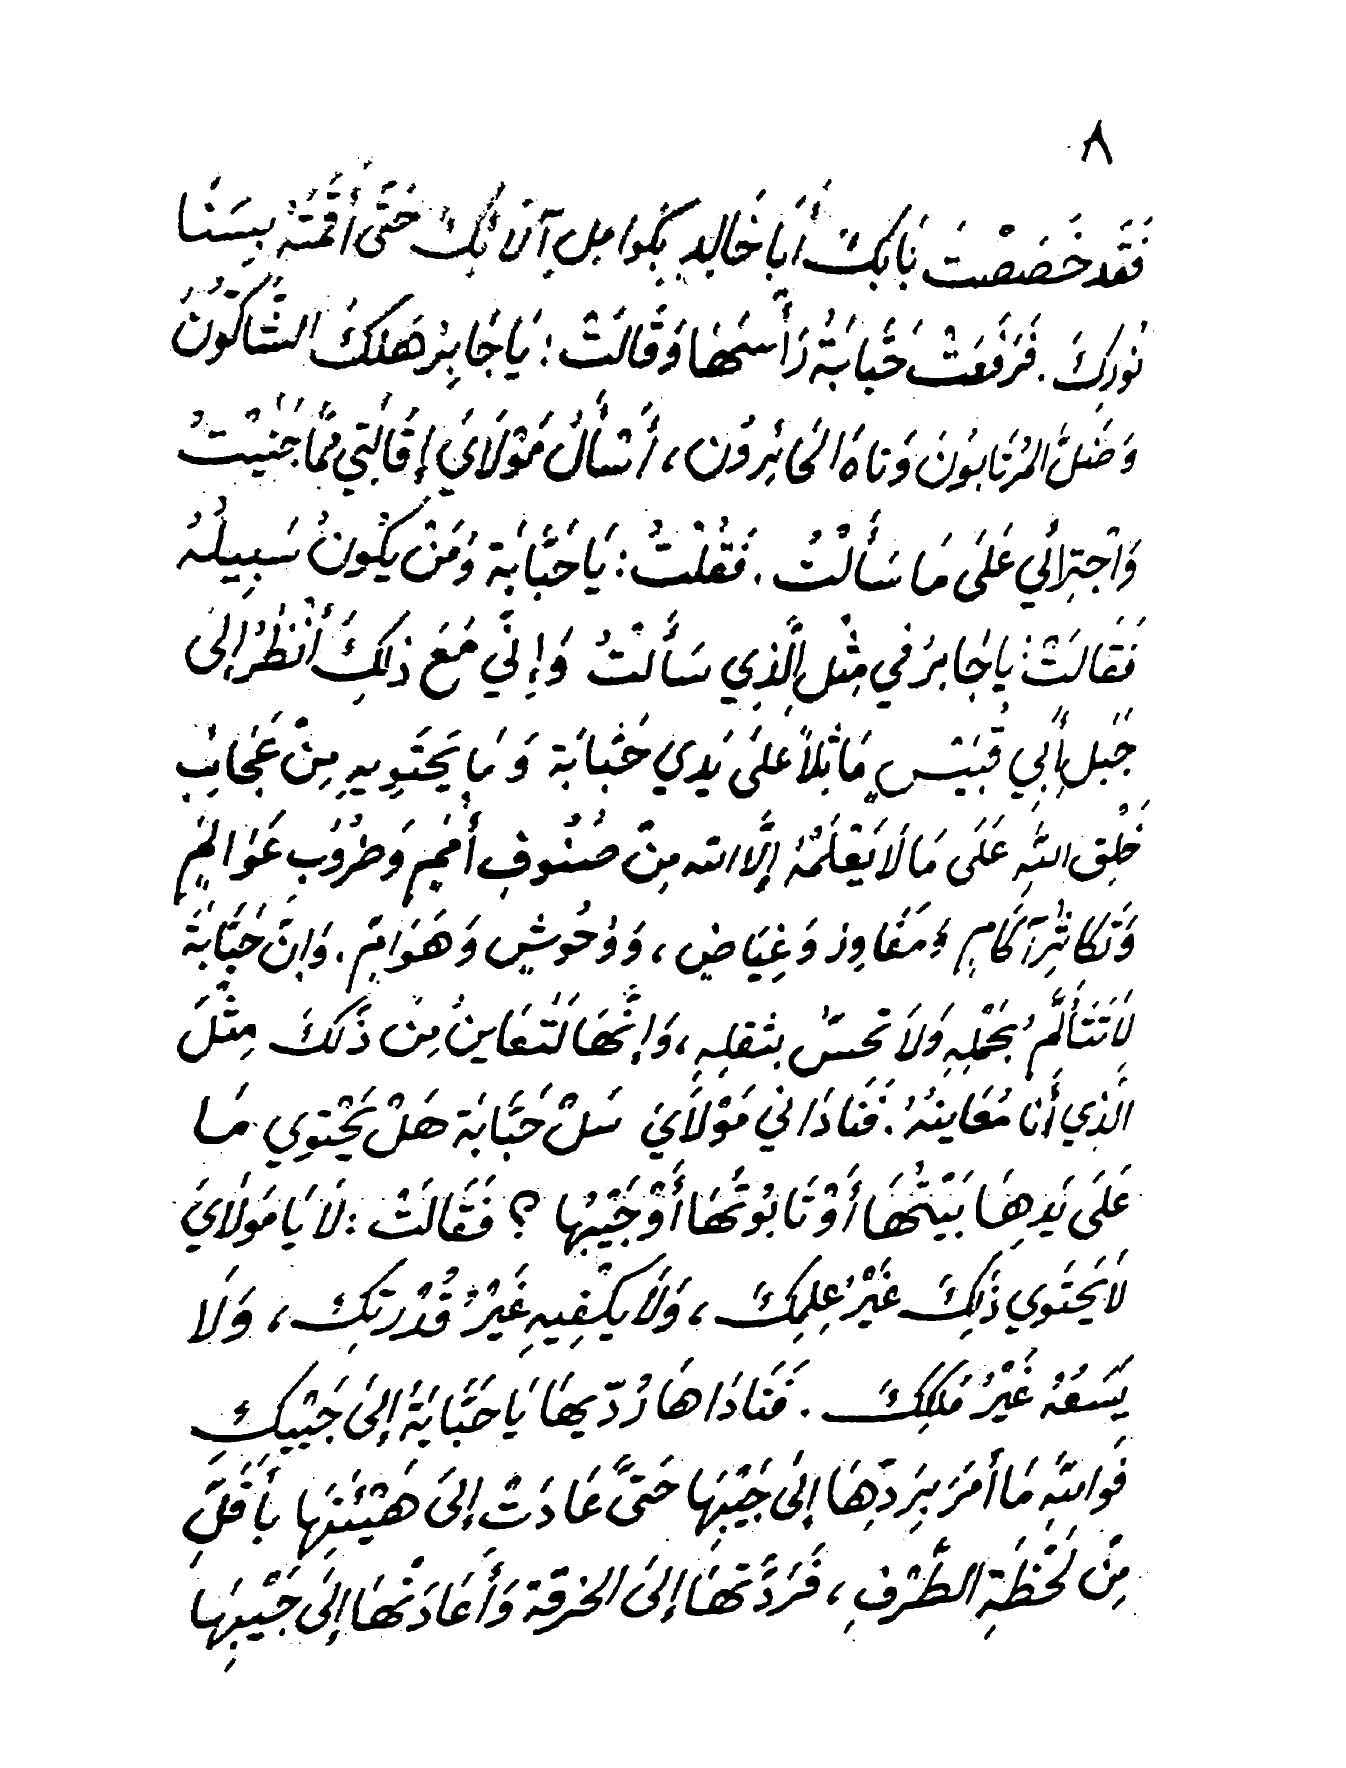 ٨
فَقَد خَصَصْتَ بَابَكَ أَبَا خَالِدٍ بِكَوامِلِ آلائِكَ حَتَّى أَقَمْتَهُ بِسَنَا
نُورِكَ . فَرَفَعَتْ حَبَّابَةُ رَأْسَهَا وَقَالَتْ : يَا جَابِرُ هَلَكَ الشَّاكُّونَ
وَضَلَّ المُرْتَابُونَ وَتاهَ الحَائِرُون ، أَسْأَلُ مَوْلَايَ إِقَالَتِي مِمَّا جَنَيْتُ
وَاجْتِرائي عَلَى مَا سَأَلْتُ . فَقُلْتُ : يَا حَبَّابَة وَمَنْ يَكُونُ سَبِيلُهُ
فَقَالَتْ : يا جَابِرُ في مِثْلِ الَّذِي سَأَلْتُ وَإِنِّي مَعَ ذلِكَ أَنْظُرُ إِلَى
جَبَلِ أَبِي قُبَيْسٍ مَاثِلاً عَلَى يَدي حَبَّابَة وَمَا يَحْتَوِيهِ مِنْ عَجَائِبِ
خَلْقِ اللهِ عَلَى مَا لَا يَعْلَمُهُ إِلَّا الله مِنْ صُنُوفِ أُمَمٍ وَضُرُوبِ عَوَالِمٍ
وَتَكاثُرِ آكَامٍ وَمَفَاوِز وَغِيَاضٍ ، وَوُحُوشٍ وَهَوَامٍّ . وَإِنَّ حَبَّابَةَ
لَا تَتَأَلَّمُ بِحَمْلِهِ وَلَا تحسُّ بثقلِهِ ، وَإِنَّهَا لَتُعَاينُ مِنْ ذَلكَ مِثْلَ
الَّذِي أَنا مُعَاينُهُ . فَنَادَاني مَوْلَايَ سَلْ حَبَّابَة هَلْ يَحْتوِي مَا
عَلَى يَدِهَا بَيْتُهَا أَوْ تَابُوتُهَا أَوْ جَيْبُها ؟ فَقَالَتْ : لَا يَا مَوْلَايَ
لَا يَحْتَوِي ذَلِكَ غَيْرُ عِلمِكَ ، وَلَا يَكْفِيهِ غَيْرُ قُدْرَتِكَ ، وَلَا
يَسَعُهُ غَيْرُ مُلْكِكَ . فَنَادَاهَا رُدِّيهَا يَا حَبَّابَةُ إِلَى جَيْبِكِ
فَوَاللهِ مَا أَمَرَ بِرَدِّهَا إِلَى جَيْبِهَا حَتَّى عَادَتْ إِلَى هَيْئَتِهَا بِأَقَلِّ
مِنْ لَحْظَةِ الطَّرْفِ ، فَرَدَّتْهَا إِلَى الخرقة وَأَعَادَتْهَا إِلَى جَيْبِهَا